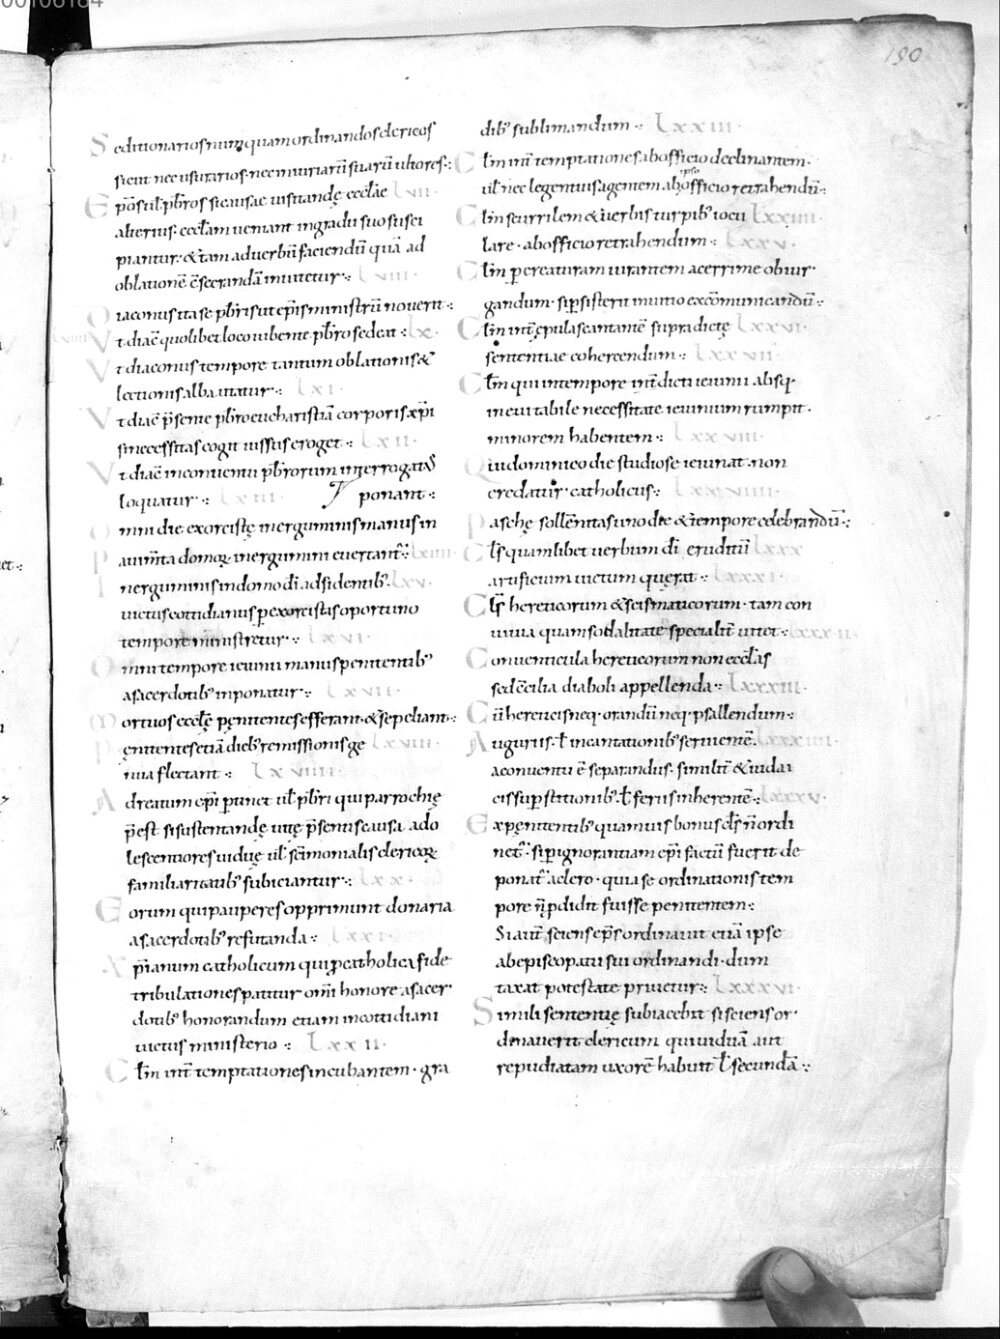 190
Seditionarios numquam ordinandos clericos
sicut nec usurarios· nec iniuriarū suarū ultores·:
Ep̄os ul̄ pb̄ros si causae uisitandę eccl̄ae LVII·
alterius· eccl̄am ueniant in gradu suo susci
piantur· & tam ad uerbū faciendū quā ad
oblationē c̄secrandā inuitetur·: LVIII·
Diaconus ita se pb̄ri sicut ep̄is ministrū nouerit·:
Vt diac̄ quolibet loco iubente pb̄ro sedeat·: LX·
Vt diaconus tempore tantum oblationis &
lectionis alba utatur·: LXI·
Vt diac̄ p̄sente pb̄ro eucharistiā corporis xp̄i
si necessitas cogit iussus eroget·: LXII·
Vt diac̄ in conuentu pb̄rorum interrogatus
loquatur·: LXIII· ponant·:
Omni die exorcistę inerguminis manus in
Pauimta domoꝝ inergumini euertant·: LXIIII·
Inerguminis in domo dī adsidentib; LXV·
uictus cottidianus p exorcistas oportuno
tempore ministretur·: LXVI·
Omni tempore ieiunii manus penitentib;
a sacerdotib; inponatur·: LXVII·
Mortuos eccl̄ę pęnitentes efferant & sepeliant·:
Pęnitentes etiā dieb; remissionis ge LXVIII·
nua flectant·: LXVIIII·
Ad reatum ep̄i ptinet ul̄ pb̄ri qui parrochię
p̄est si sustentandę uitę p̄sentis causa ado
lescentiores uiduę ul̄ sc̄imonialis clericoꝝ
familiaritatib; subiciantur·: LXX·
Eorum qui pauperes opprimunt donaria
a sacerdotib; refutanda·: LXXI·
Xp̄ianum catholicum qui p catholica fide
tribulationes patitur om̄i honore a sacer
dotib; honorandum etiam in cottidiani
uictus ministerio·: LXXII·
Cl̄m int̄ temptationes incubantem· gra
dib; sublimandum·: LXXIII·
Cl̄m int̄ temptationes ab officio declinantem·
ul̄ neclegentius agentem ab ipso officio retrahendū·:
Cl̄m scurrilem & uerbis turpib; iocu LXXIIII·
lare· ab officio retrahendum·: LXXV·
Cl̄m p creaturam iurantem acerrime obiur
gandum· si pstiterit in uitio excōmunicandū·:
Cl̄m int̄ epulas cantantē supradictę LXXVI·
sententiae cohercendum·: LXXVII·
Cl̄m qui in tempore indicti ieiunii absq;
ineuitabile necessitate ieiunium rumpit·
minorem habentem·: LXXVIII·
Qui dominico die studiose ieiunat· non
credatur· catholicus·: LXXVIIII·
Paschę sollēnitas uno die & tempore celebrandū·:
Cl̄s quamlibet uerbum dī eruditū LXXX
artificium uictum quęrat·: LXXXI·
Cl̄s hereticorum & scismaticorum· tam con
uiuia quam sodalitate specialit̄ uitet·: LXXXII·
Conuenticula hereticorum non eccl̄as
sed c̄cilia diaboli appellenda·: LXXXIII·
Cū hereticis neq; orandū neq; psallendum·:
Auguriis· ł incantationib; seruientē· LXXXIIII·
a conuentu ē separandus· similit̄ & iudai
cis supstitionib; ł feriis inherentē·: LXXXV·
Ex pęnitentib; quamuis bonus cl̄s n̄ ordi
net̄· si p ignorantiam ep̄i factū fuerit de
ponat̄ a clero· quia se ordinationis tem
pore n̄ pdidit fuisse penitentem·:
Si aut̄ sciens ep̄s ordinauit etiā ipse
ab episcopatu sui ordinandi· dum
taxat potestate priuetur·: LXXXVI·
Simili sententię subiacebit si sciens or
dinauerit clericum qui uiduā aut
repudiatam uxorē habuit ł secundā·: